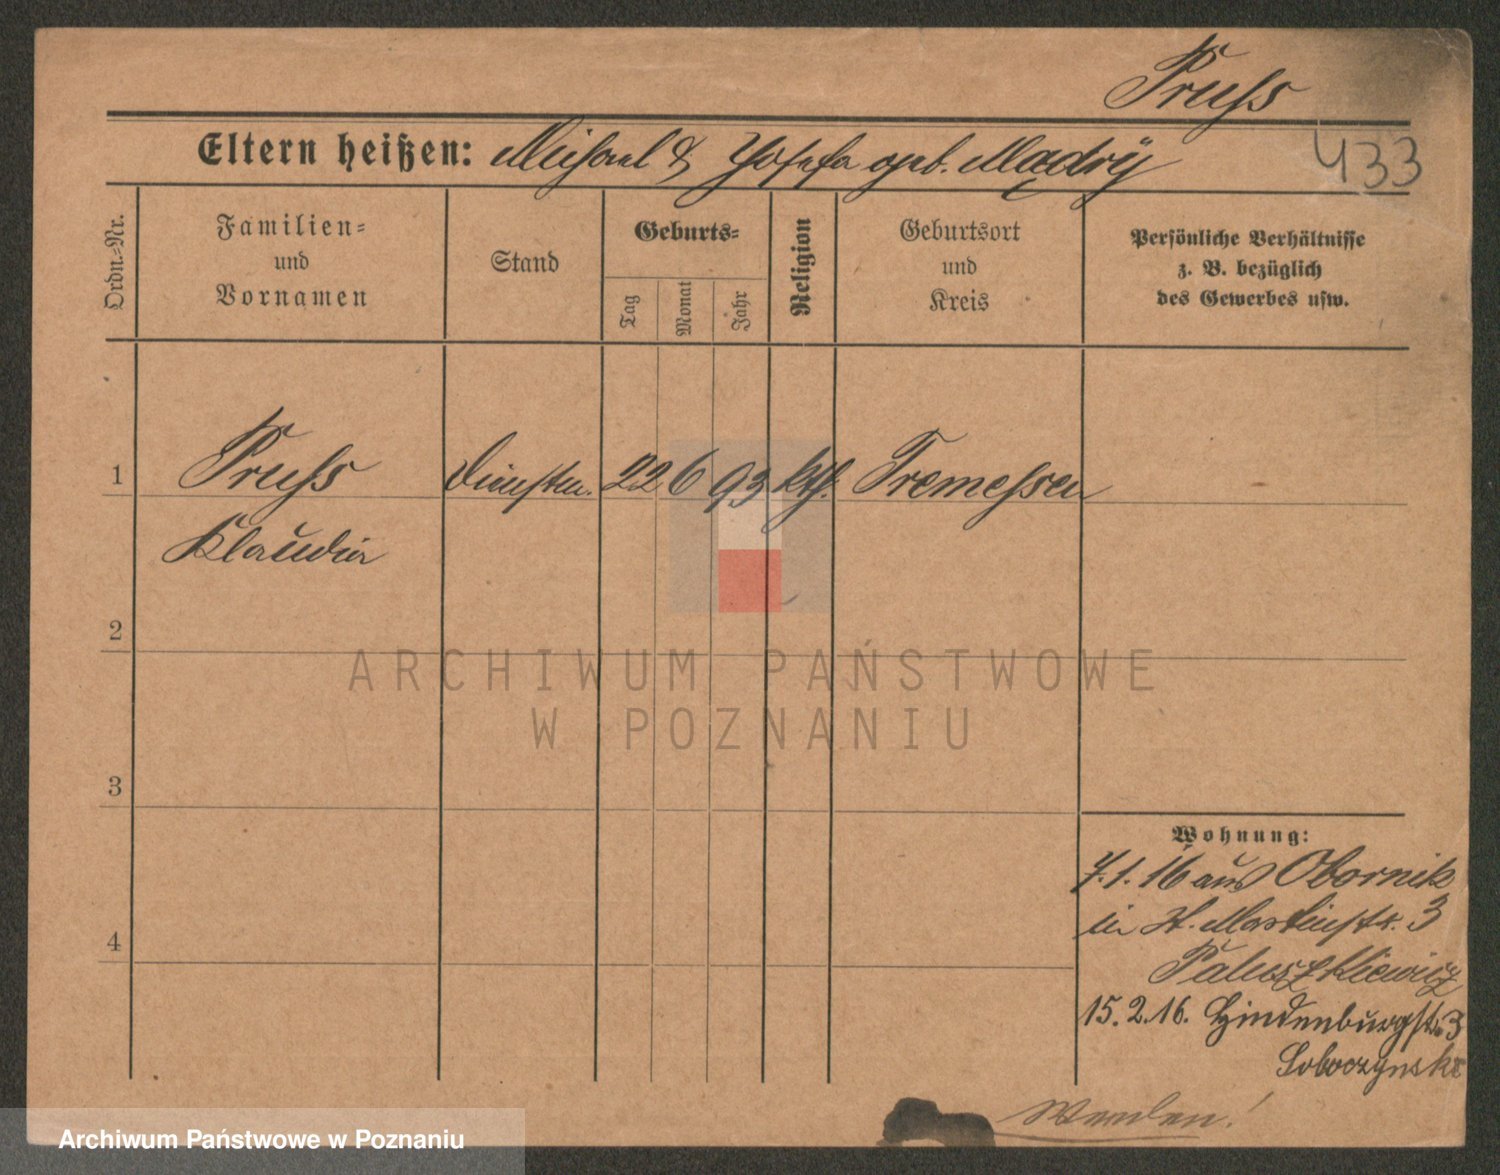 Pruſs
433
Eltern heißen: Michael & Josefa geb. Mądry
Ordn.-Nr.
Familien-
und
Vornamen
Stand
Geburts-
Tag
Monat
Jahr
Religion
Geburtsort
und
Kreis
Persönliche Verhältnisse
z. B. bezüglich
des Gewerbes usw.
1 Pruſs Dienstm. 22 6 93 kth. Tremeſsen
Klaudia
2
3
4
Wohnung:
7.1.16 aus Obornik
in St. Martinstr. 3
Paluszkiewicz
15.2.16. Hindenburgstr. 3
Soboczynski
Wenden!
ARCHIWUM PAŃSTWOWE
W POZNANIU
Archiwum Państwowe w Poznaniu